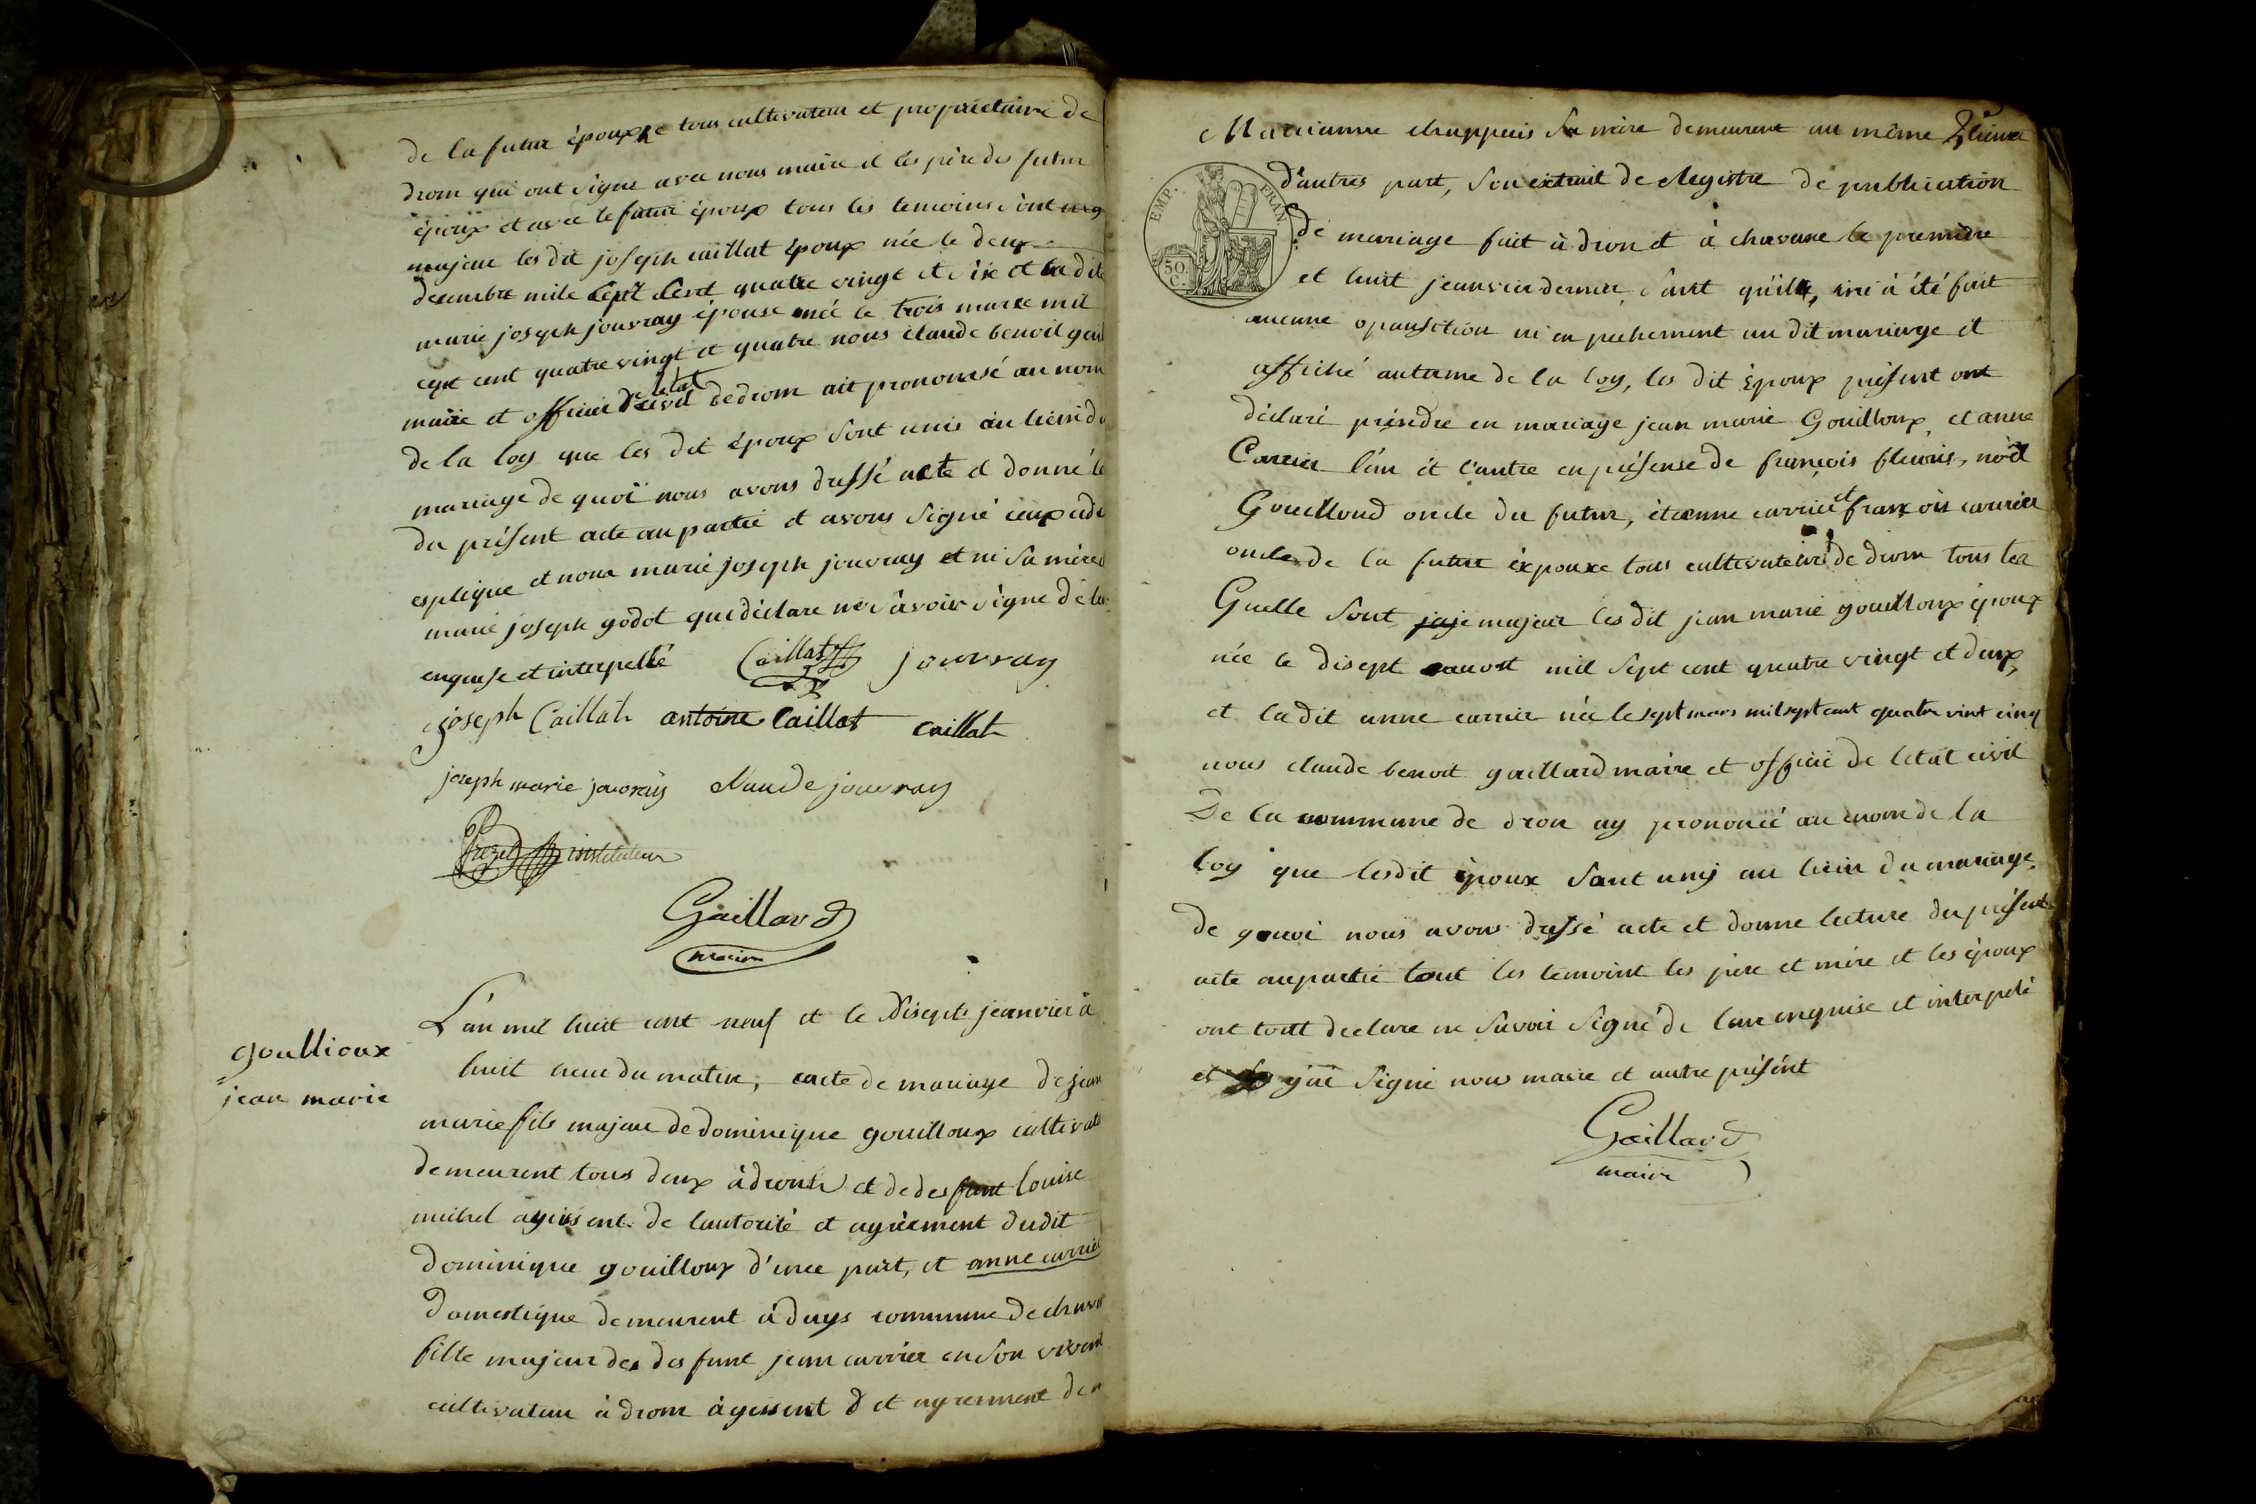 de la futur épouxe tous cultivateur et proprietaire de
drom qui ont signe avec nous maire et les père des futur
époux et avec le futur époux tous les temoins sont
majeur les dit joseph caillat époux née le deux
decembre mile sept cent quatre vingt et six et la dite
marie joseph jouvray épouse née le trois mars mil
cept cent quatre vingt et quatre nous claude benoit gail
maire et officier de letat civil de drom ait prononcé au nom
de la loy que les dit époux sont unis au lien du
mariage de quoi nous avons dressé acte et donné le
du présent acte au partie et avons signé ceux cidu
esplique et nom marie joseph jouvray et ni sa mère
marie joseph godot qui déclare ne savoir signe de leur
enquise et interpellé Caillat jouvray
joseph Caillat antoine Caillat caillat
joseph marie jouvray claude jouvray
instituteur
Gaillard
maire
goullioux
jean marie
L'an mil huit cent neuf et le disept jeanvier à
huit heur du matin, acte de mariage de jean
marie fils majeur de dominique gouilloux cultivat
demeurent tous deux à drom et de desfunt louise
michel agissent de lautorité et agrément dudit
dominique gouilloux d'une part, et anne carrier
domestique demeurent à duys commune de chavan
fille majeur de desfunt jean carrier en son vivant
cultivateur à drom agissent d et agrement de
Marianne chappuis sa mère demeurent au même
EMP. FRAN.
50 C.
d'autres part, son extrait de Registre de publication
de mariage fait à drom et à chavane le premiere
et huit jeanvier dernier, sant qu'il, nie à été fait
aucune oposition ni en pechement au dit mariage et
affiché au terme de la loy, les dit époux présent ont
déclaré prendre en mariage jean marie Gouilloux, et anne
Carrier l'un et l'autre en présense de françois fleuris, noël
Gouilloud oncle du futur, étienne carrier et françois carrier
oncle de la futur épouxe tous cultivateur de drom tous les
Quelle sont majeur les dit jean marie gouilloux époux
née le disept auost mil sept cent quatre vingt et deux,
et ladit anne carrier née le sept mars mil sept cent quatre vint cinq
nous claude benoit gaillard maire et officié de letat civil
De la commune de drom ay prononcé au nom de la
loy que lesdit époux sont unis au lien du mariage
de quoi nous avons dressé acte et donne lecture du présent
acte au partie tout les temoint les père et mère et les époux
ont tout declare ne savoir signé de leur enquise et interpelé
et jai signé nous maire et autre présént
Gaillard
maire